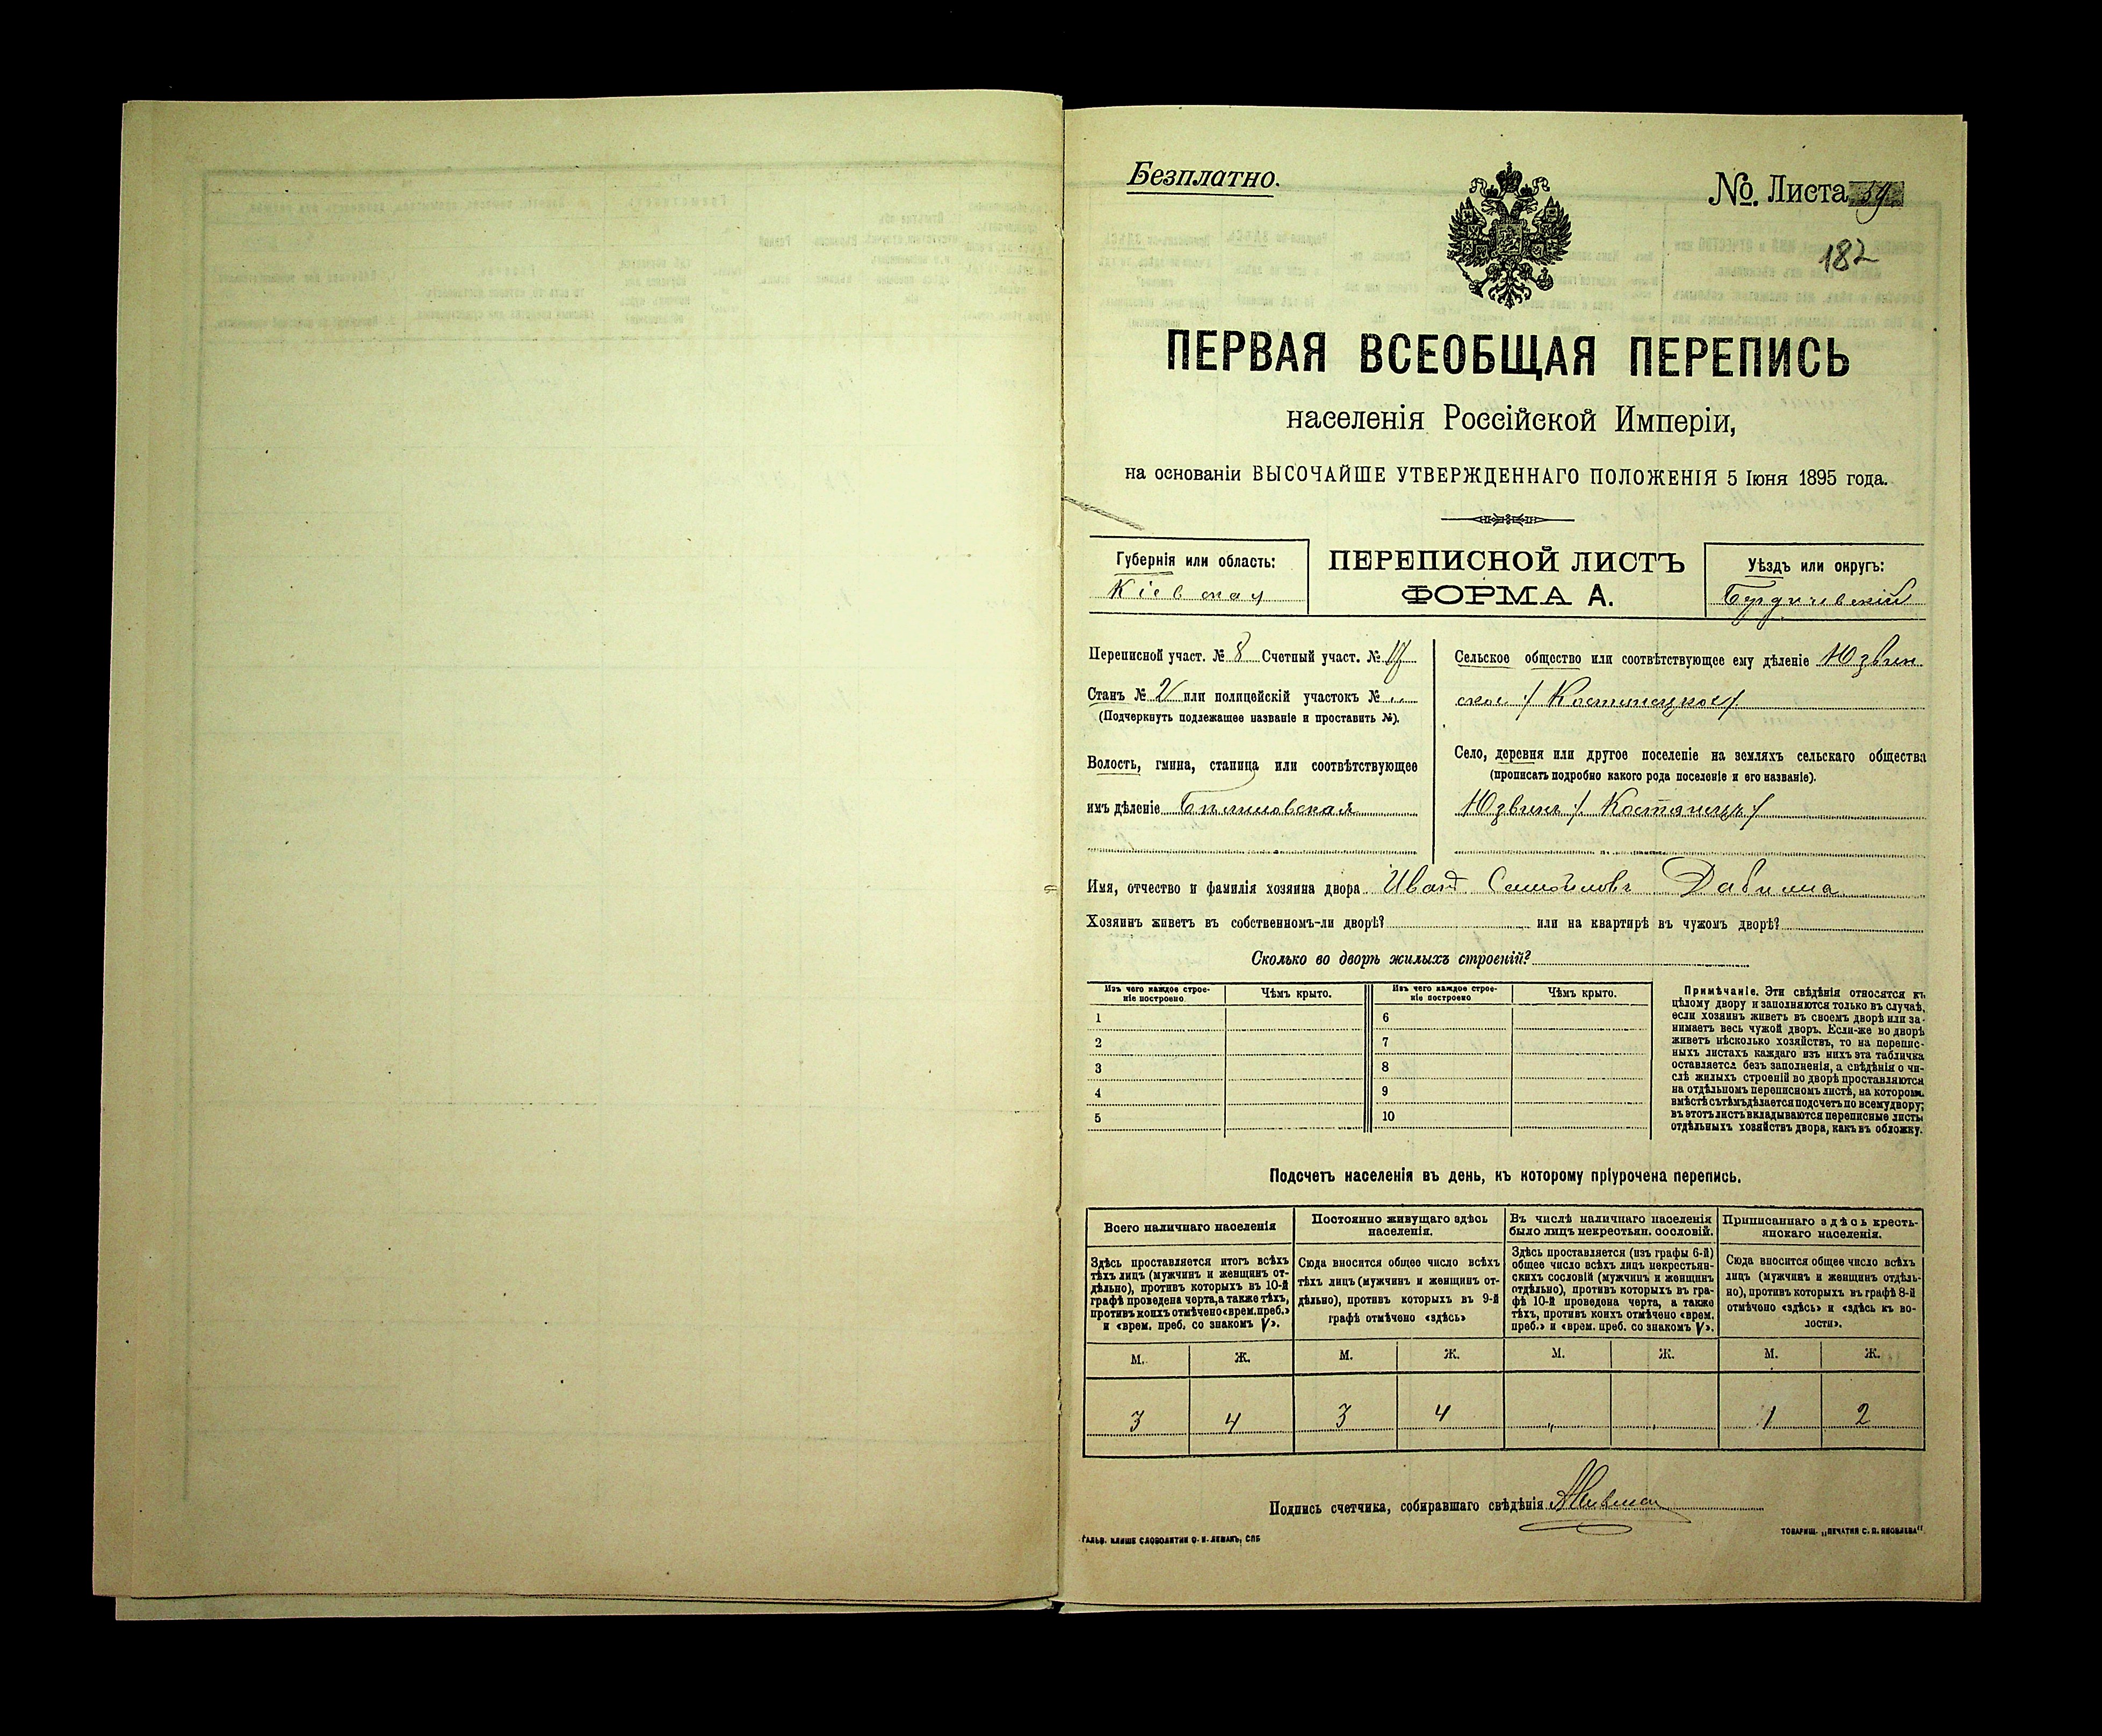 Безплатно.
№. Листа 59.
182
ПЕРВАЯ ВСЕОБЩАЯ ПЕРЕПИСЬ
населенія Россійской Имперіи,
на основаніи ВЫСОЧАЙШЕ УТВЕРЖДЕННАГО ПОЛОЖЕНІЯ 5 Іюня 1895 года.
Губернія или область:
Кіевская
ПЕРЕПИСНОЙ ЛИСТЪ
ФОРМА А.
Уѣздъ или округъ:
Бердичевскій
Переписной участ. № 8 Счетный участ. №
Станъ № 2 или полицейскій участокъ № „
(Подчеркнуть подлежащее названіе и проставить №).
Волость, гмина, станица или соотвѣтствующее
имъ дѣленіе Бѣлиловская
Сельское общество или соотвѣтствующее ему дѣленіе Юзвин
ское /
Село, деревня или другое поселеніе на земляхъ сельскаго общества
(прописать подробно какого рода поселеніе и его названіе).
Юзвинъ /
Имя, отчество и фамилія хозяина двора Иванъ Самойловъ
Хозяинъ живетъ въ собственномъ-ли дворѣ? или на квартирѣ въ чужомъ дворѣ?
Сколько во дворѣ жилыхъ строеній?
Изъ чего каждое строе-
ніе построено
Чѣмъ крыто.
1
2
3
4
5
Изъ чего каждое строе-
ніе построено
Чѣмъ крыто.
6
7
8
9
10
Примѣчаніе. Эти свѣдѣнія относятся къ
цѣлому двору и заполняются только въ случаѣ,
если хозяинъ живетъ въ своемъ дворѣ или за-
нимаетъ весь чужой дворъ. Если-же во дворѣ
живетъ нѣсколько хозяйствъ, то на перепис-
ныхъ листахъ каждаго изъ нихъ эта табличка
оставляется безъ заполненія, а свѣдѣнія о чи-
слѣ жилыхъ строеній во дворѣ проставляются
на отдѣльномъ переписномъ листѣ, на которомъ
вмѣстѣ съ тѣмъ дѣлается подсчетъ по всему двору;
въ этотъ листъ вкладываются переписные листы
отдѣльныхъ хозяйствъ двора, какъ въ обложку.
Подсчетъ населенія въ день, къ которому пріурочена перепись.
Всего наличнаго населенія
Здѣсь проставляется итогъ всѣхъ
тѣхъ лицъ (мужчинъ и женщинъ от-
дѣльно), противъ которыхъ въ 10-й
графѣ проведена черта, а также тѣхъ,
противъ коихъ отмѣчено «врем. преб.»
и «врем. преб. со знакомъ V».
Постоянно живущаго здѣсь
населенія.
Сюда вносится общее число всѣхъ
тѣхъ лицъ (мужчинъ и женщинъ от-
дѣльно), противъ которыхъ въ 9-й
графѣ отмѣчено «здѣсь»
Въ числѣ наличнаго населенія
было лицъ некрестьян. сословій.
Здѣсь проставляется (изъ графы 6-й)
общее число всѣхъ лицъ некрестьян-
скихъ сословій (мужчинъ и женщинъ
отдѣльно), противъ которыхъ въ гра-
фѣ 10-й проведена черта, а также
тѣхъ, противъ коихъ отмѣчено «врем.
преб.» и «врем. преб. со знакомъ V».
Приписаннаго здѣсь кресть-
янскаго населенія.
Сюда вносится общее число всѣхъ
лицъ (мужчинъ и женщинъ отдѣль-
но), противъ которыхъ въ графѣ 8-й
отмѣчено «здѣсь» и «здѣсь къ во-
лости».
М. Ж. М. Ж. М. Ж. М. Ж.
3 4 3 4 „ „ 1 2
Подпись счетчика, собиравшаго свѣдѣнія
ГАЛЬВ. КЛИШЕ СЛОВОЛИТНИ О. И. ЛЕМАНЪ, СПБ
ТОВАРИЩ. „ПЕЧАТНЯ С. П. ЯКОВЛЕВА"